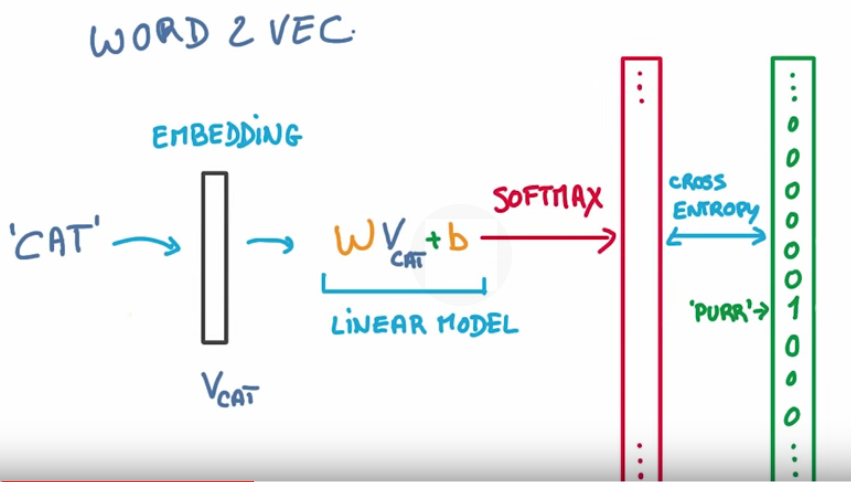 WORD 2 VEC.
EMBEDDING
'CAT'
V CAT
W V CAT + b
LINEAR MODEL
SOFTMAX
⋮
⋮
CROSS
ENTROPY
⋮
0
0
0
0
0
0
'PURR'→ 1
0
0
0
⋮